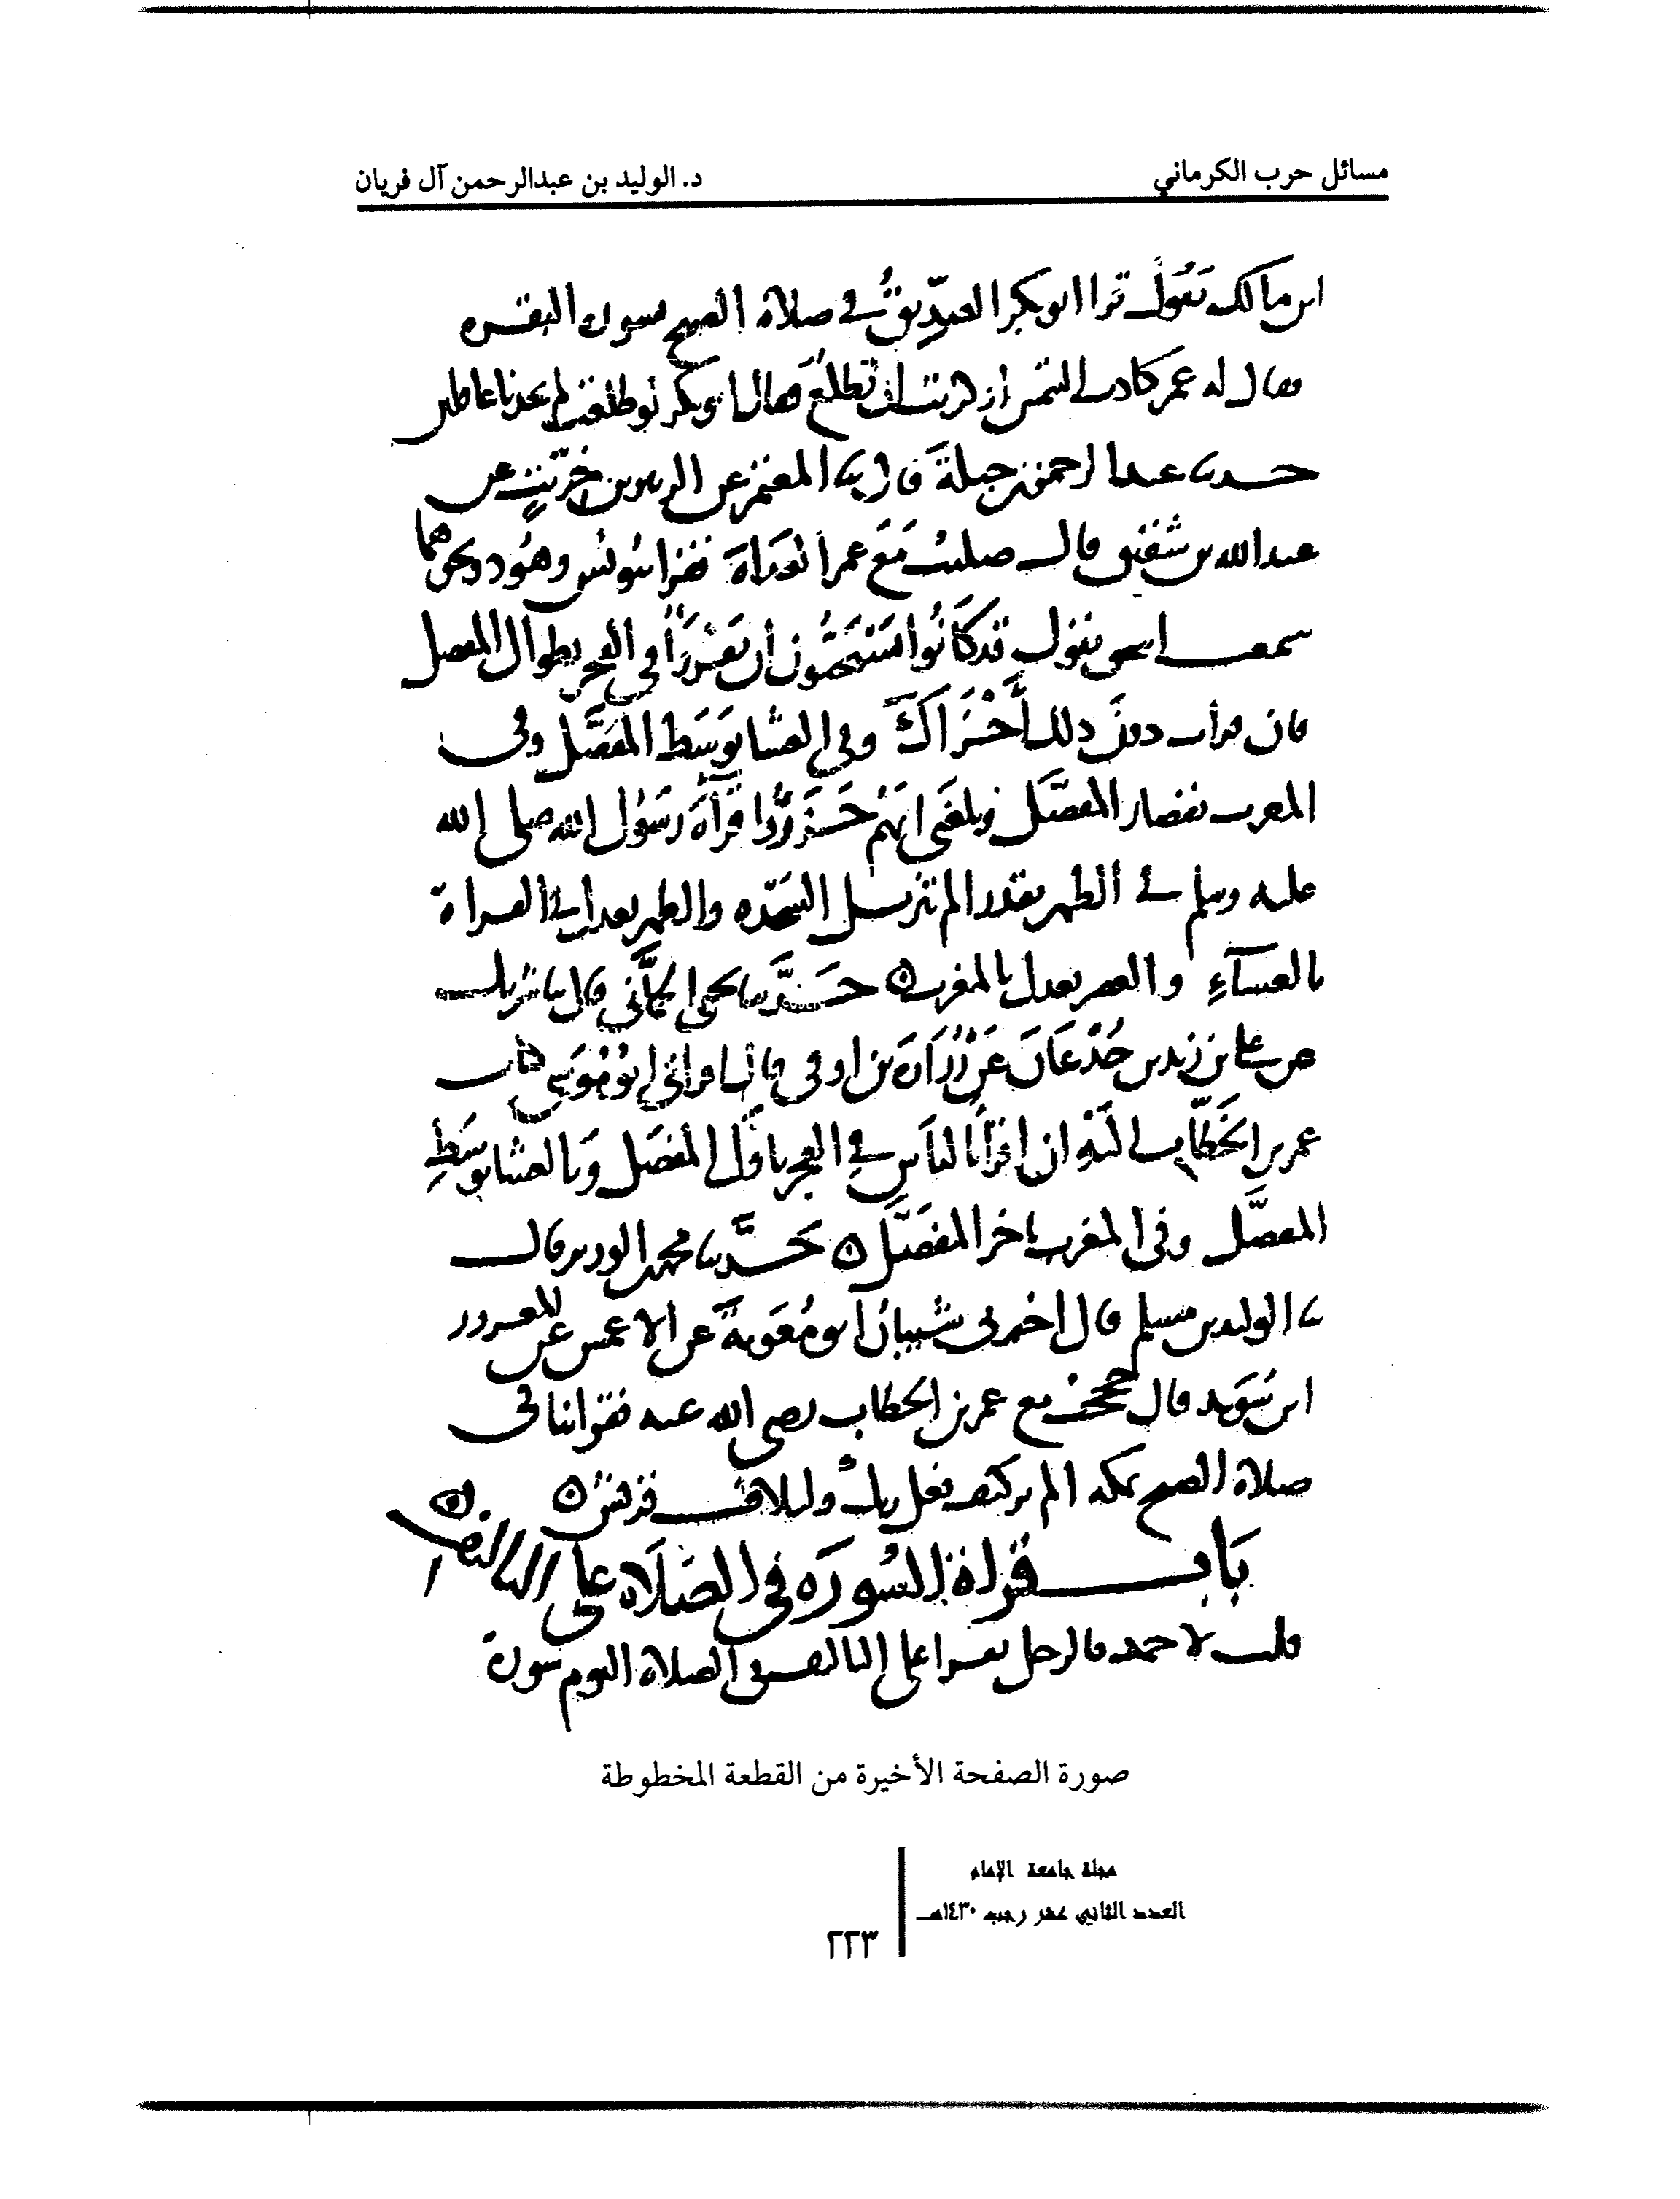 مسائل حرب الكرماني
د. الوليد بن عبدالرحمن آل فريان
ابن مالك يقول قرا ابو بكر الصديق في صلاة الصبح سورة البقره
فقال له عمر كادت الشمس ان تطلع فقال ابو بكر لو طلعت لم تجدنا غافلين
حدثنا عبدالرحمن بن جبلة قال ثنا المعتمر عن الزبير بن خريت عن
عبدالله بن شقيق قال صليت مع عمر الغداة فقرا يونس وهود ونحوهما
سمعت اسحق يقول قد كانوا يستحبون أن يقرأ في الفجر بطوال المفصل
فان قرأت دون ذلك أجزاك وفي العشا بوسط المفصل وفي
المغرب بقصار المفصل وبلغني انهم حزروا قرآة رسول الله صلى الله
عليه وسلم في الظهر بقدر الم تنزيل السجده والظهر يعدل في القراة
بالعشآء والعصر يعدل بالمغرب ه حدثنا يحيى الحماني قال ثنا شريك
عن علي بن زيد بن جدعان عن زرارة بن اوفى قال اقراني ابو موسى كتاب
عمر بن الخطاب اليه ان اقرأ بالناس في الفجر باول المفصل وبالعشا بوسط
المفصل وفي المغرب باخر المفصل ه حدثنا محمد بن الوزير قال
ثنا الوليد بن مسلم قال اخبرني شيبان ابو معوية عن الاعمش عن المعرور
ابن سويد قال حججت مع عمر بن الخطاب رضي الله عنه فقرا بنا في
صلاة الصبح بمكه الم تر كيف فعل ربك ولايلاف قريش ه
باب قراة السورة في الصلاة على التاليف ه
قلت لاحمد فالرجل يقرا على التاليف في الصلاة اليوم سورة
صورة الصفحة الأخيرة من القطعة المخطوطة
مجلة جامعة الإمام
العدد الثاني عشر رجب ١٤٣٠هـ
٢٢٣